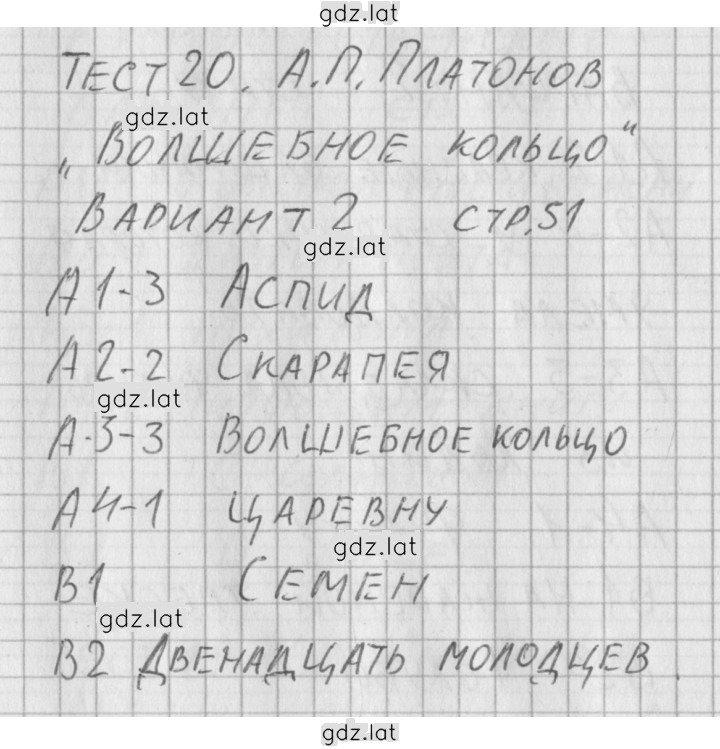 gdz.lat
Тест 20. А.П. Платонов
gdz.lat
„Волшебное кольцо“
Вариант 2 стр. 51
gdz.lat
А1-3 Аспид
А2-2 Скарапея
gdz.lat
А.3-3 Волшебное кольцо
А4-1 Царевну
gdz.lat
В1 Семен
gdz.lat
В2 Двенадцать молодцев.
gdz.lat